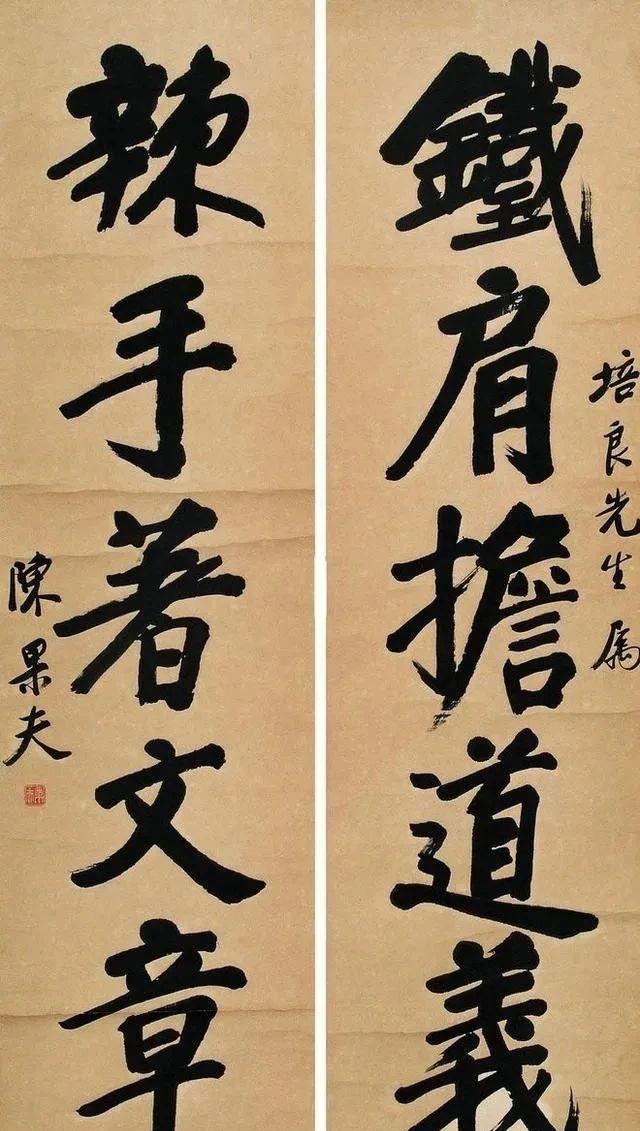 鐵肩擔道義
培良先生属
辣手著文章
陳果夫